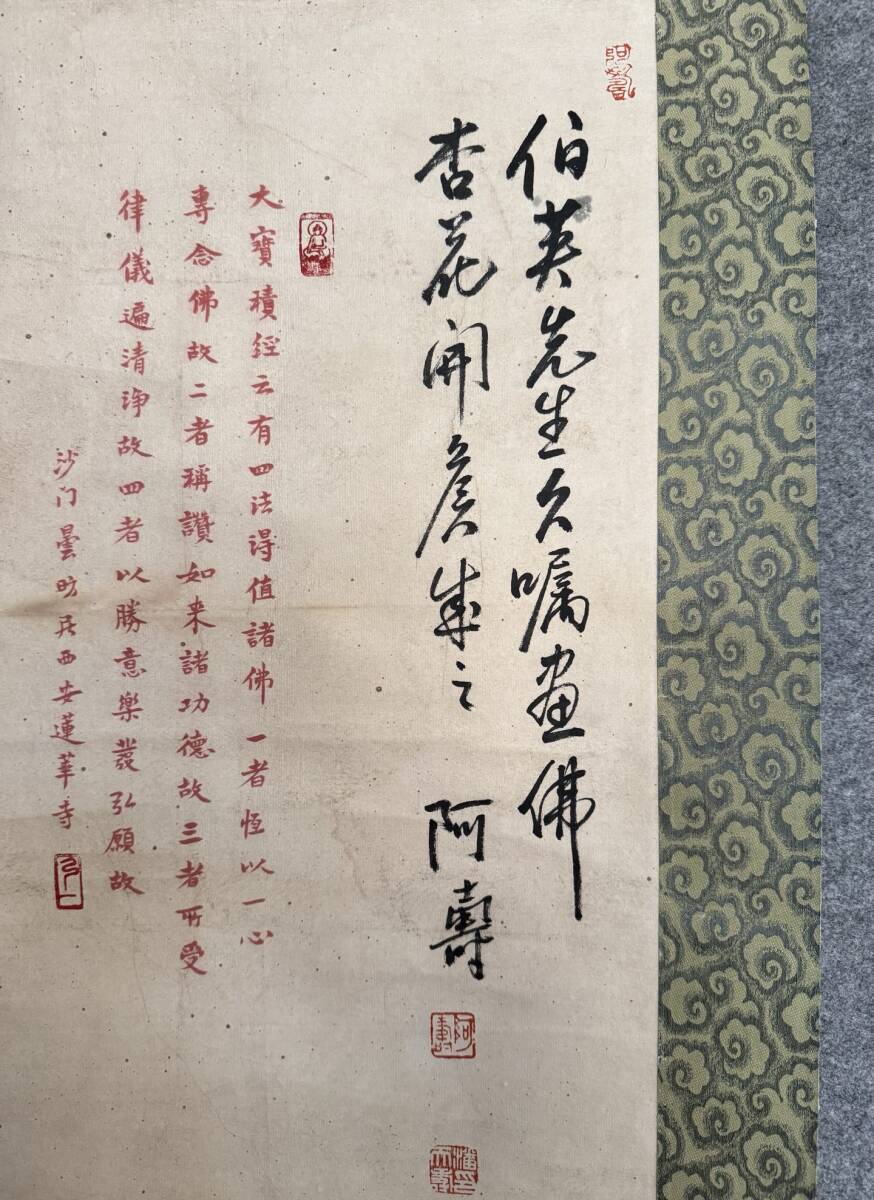 伯英先生久嘱画佛
杏花開候成之 阿壽
阿壽
大寶積經云有四法得值諸佛一者恆以一心
專念佛故二者稱讚如来諸功德故三者所受
律儀遍清淨故四者以勝意樂發弘願故
沙门曇昉居西安蓮華寺